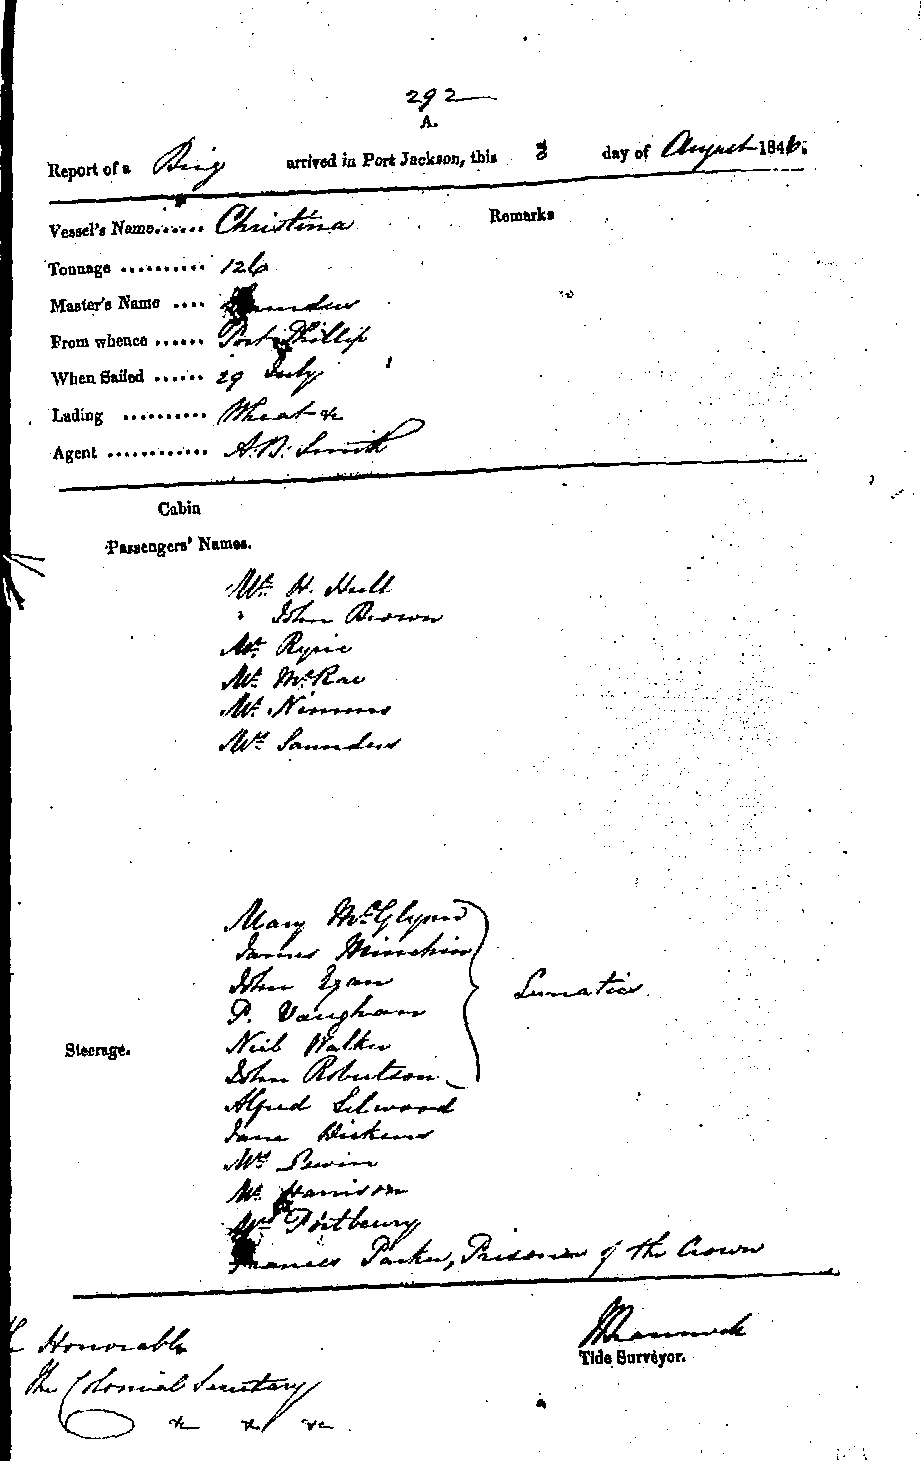 292
A.
Report of a Brig arrived in Port Jackson, this 3 day of August 1846.
Vessel's Name...... Christina
Remarks
Tonnage .......... 126
Master's Name .... Saunders
From whence ...... Port Phillip
When Sailed ...... 29 July
Lading .......... Wheat &c
Agent ............ A. B. Smith
Cabin
Passengers' Names.
Mr. H. Hull
" John Brown
Mr. Ryrie
Mr. McRae
Mr. Nimmo
Mrs. Saunders
Mary McGlynn
James Minchin
John Egan
Lunatics
P. Vaughan
Neil Walker
Steerage.
John Robertson
Alfred Silwood
Jane Dickens
Mrs. Lewin
Mr. Harrison
Mrs. Portbury
Frances Parker, Prisoner of the Crown
Honorable
Tide Surveyor.
The Colonial Secretary
&c &c &c